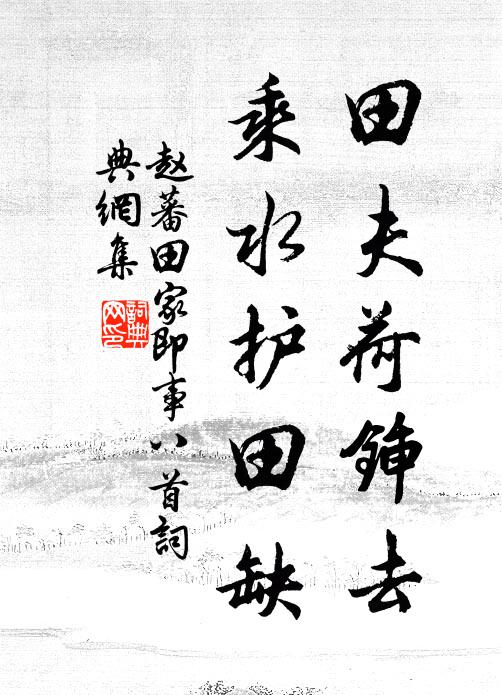 田夫荷锸去
乘水护田缺
赵蕃田家即事八首詞
典網集
詞典
网印